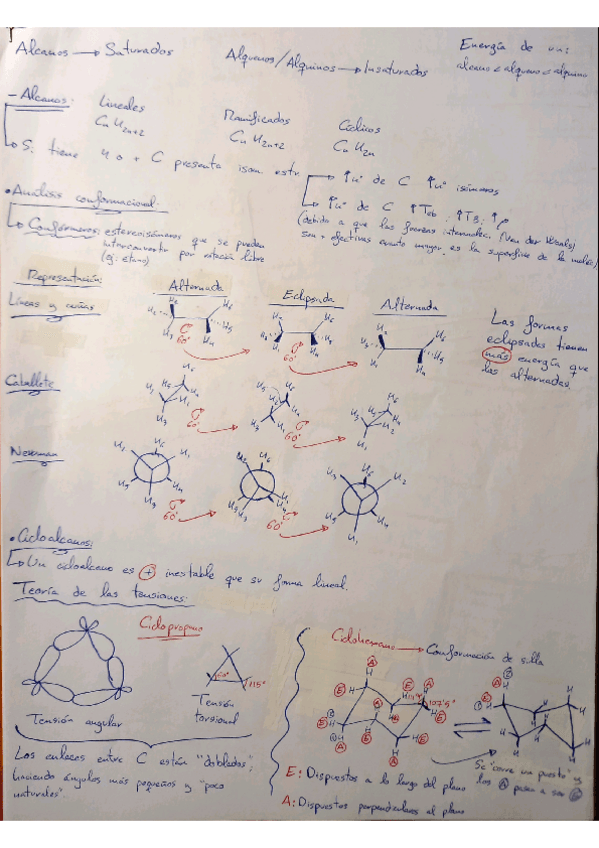 Alcanos → Saturados
Alquenos/Alquinos → Insaturados
Energía de un:
alcano < alqueno < alquino
- Alcanos:
Lineales
CnH2n+2
Ramificados
CnH2n+2
Cíclicos
CnH2n
Si tiene 4 o + C presenta isom estr
↑nº de C ↑nº isómeros
↑nº de C ↑Teb ; ↑TB ; ↑ρ
(debido a que las fuerzas intermolec. (Van der Waals)
son + efectivas cuanto mayor es la superficie de la moléc)
• Análisis conformacional.
Confórmeros: estereoisómeros que se pueden
interconvertir por rotación libre
(ej: etano)
Representación:
Alternada
Eclipsada
Alternada
Líneas y cuñas
60°
60°
Las formas
eclipsadas tienen
más energía que
las alternadas.
Caballete
60°
60°
Newman
60°
60°
• Cicloalcanos:
Un cicloalcano es + inestable que su forma lineal.
Teoría de las tensiones:
Ciclopropano
60°
115°
Tensión angular
Tensión
torsional
Los enlaces entre C están "doblados",
haciendo ángulos más pequeños y "poco
naturales".
Ciclohexano → Conformación de silla
107'5°
E: Dispuestos a lo largo del plano
A: Dispuestos perpendiculares al plano
Se "corre un puesto" y
los A pasan a ser E